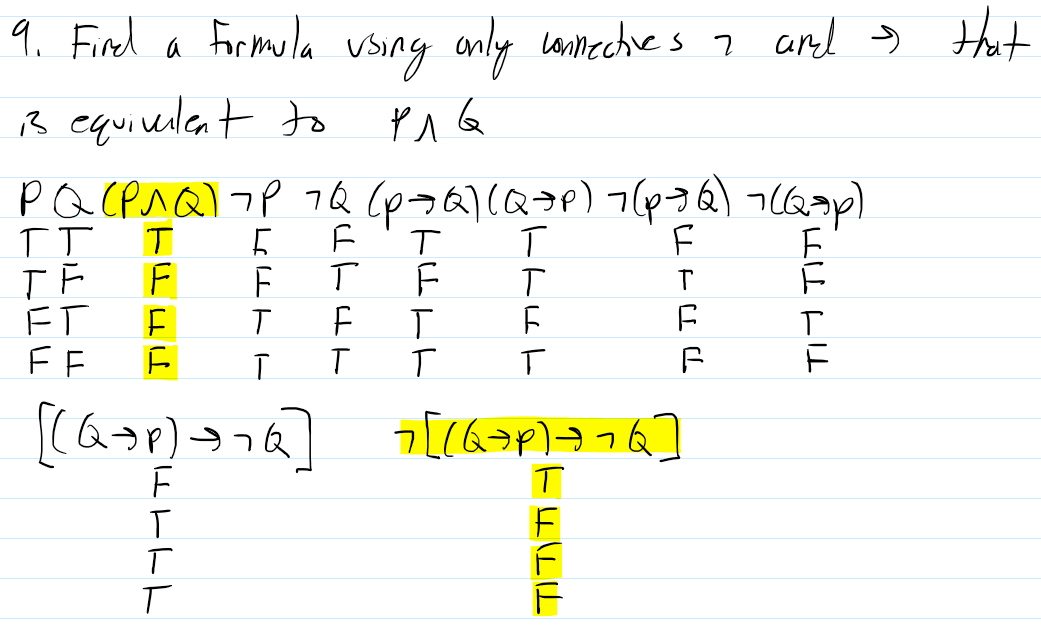 9. Find a formula using only connectives ¬ and → that
is equivalent to P∧Q
P Q (P∧Q) ¬P ¬Q (P→Q) (Q→P) ¬(P→Q) ¬(Q→P)
T T T F F T T F F
T F F F T F T T F
F T F T F T F F T
F F F T T T T F F
[(Q→P)→¬Q] ¬[(Q→P)→¬Q]
F T
T F
T F
T F